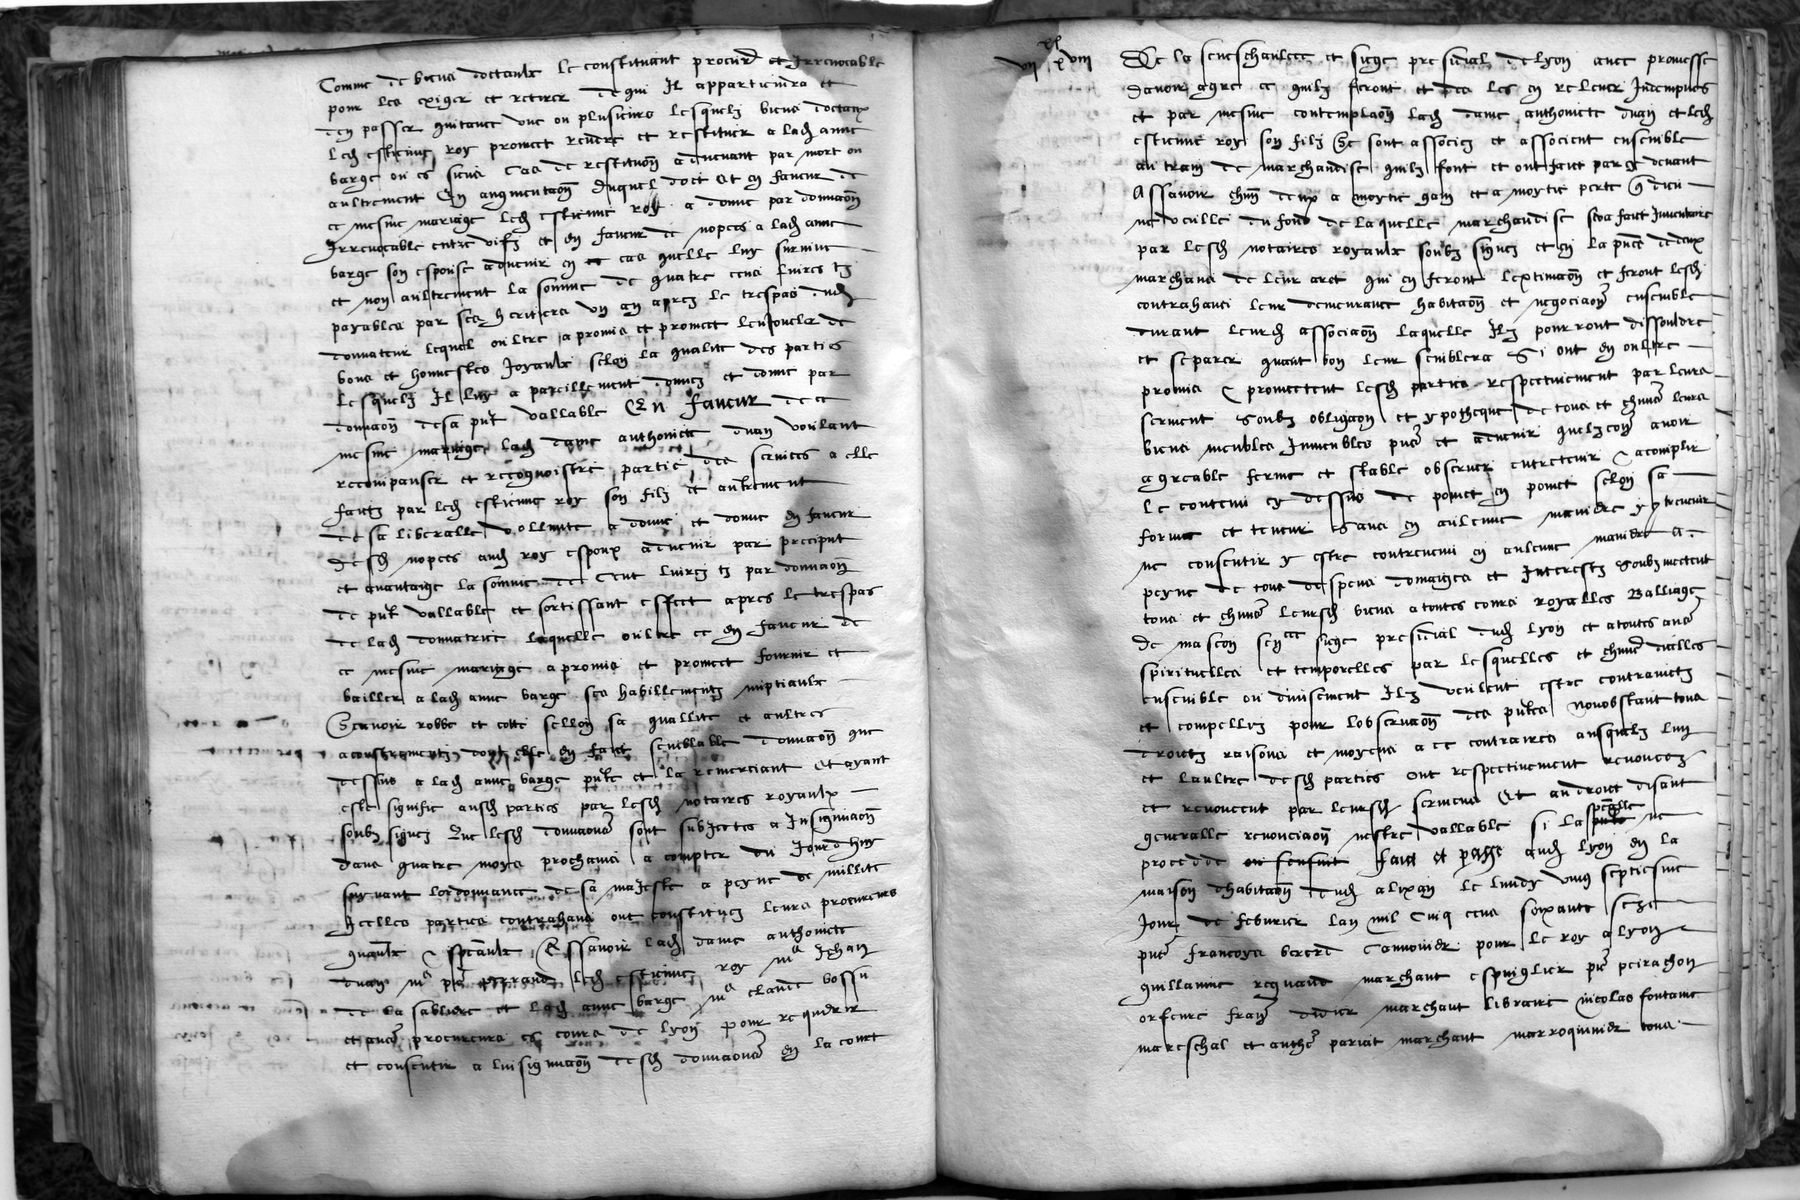 Comme de biens doctaulx le constituant procur et Irrevocable
pour les exiger et retirer de qui Il appartiendra et
den passer quitance une ou plusieurs lesquelz biens doctaux
led estienne roy promect rendre et restituer a lad anne
barge ou es siens cas de restitution advenant par mort ou
aultrement En augmentaon duquel doct Et en faveur de
ce mesme mariage led estienne roy a donne par donnaon
Irrevocable entre vifz et en faveur de nopces a lad anne
barge son espouse advenir en ce cas quelle luy survive
et non aultrement la somme de quatre cens livres tz
payables par ses heritiers un an apres le trespas dud
donnateur lequel oultre a promis et promect lenjoueler de
bons et honnestes Joyaulx selon la qualite des parties
lesquelz Il luy a pareillement donnez et donne par
donnaon desa put vallable En faveur de ce
mesme mariage lad dame anthoinete duan voulant
recompanser et recognoistre partie des services a elle
faictz par led estienne roy son filz et aultrement
de sa liberalle vollunte a donne et donne en faveur
desd nopces aud roy espoux advenir par preciput
et avantaige la somme de Cent livres tz par donnaon
de put vallable et sortissant effect apres le trespas
de lad donnatrice laquelle oultre ce en faveur de
ce mesme mariage a promis et promect fournir et
bailler a lad anne barge ses habillementz nuptiaulx
Scavoir robbe et cotte sellon sa quallite et aultres
acoustrementz dont elle en faict semblable donnaon que
dessus a lad anne barge pnte et la remerciant Et ayant
este signiffie ausd parties par lesd notaires royaulx
soubz signez Que lesd donnaons sont subjectes a Insignuaon
dans quatre moys prochains a compter du Jourdhuy
suyvant lordonnance de sa majeste a peyne de nullite
Icelles parties contrahans ont constituez leurs procureurs
gnaulx & speaulx Assavoir lad dame anthoinete
duan me pre perrand led estienne roy me Jehan
de la sabliere et lad anne barge me claude bossu
et aues procureurs es cours de lyon pour requerir
et consentir a linsignuaon desd donnaons en la court
vii xl xviii
De la seneschaulcee et siege presidial de lyon avec promesse
davoir agre ce quilz feront et des les en relever Indempnes
et par mesme contemplaon lad dame anthoinete duan et led
estienne roy son filz Se sont associez et associent ensemble
au train de marchandise quilz font et ont faict par cy devant
Assavoir chun deux a moytie gain et a moytie perte q dieu
ne veuille du fons de laquelle marchandise sera faict Inventaire
par lesd notaires royaulx soubz signez et en la pnce de deux
marchans de leur aret qui en feront lextimaon et feront lesd
contrahans leur demeurance habitaon et negociaon ensemble
durant leurd associaon laquelle Ilz pourront dissouldre
et separer quant bon leur semblera Si ont en oultre
promis & promectent lesd parties respectivement par leurs
serment soubz obligaon et ypotheque de tous et chuns leurs
biens meubles Inmeubles pns et advenir quelzconques avoir
agreable ferme et stable observer entretenir & acomplir
le contenu cy dessus de poinct en poinct selon sa
forme et teneur Sans en aulcune maniere y contrevenir
ne consentir y estre contrevenu en aulcune maniere A
peyne de tous despens domaiges et Interestz Soubzmectent
tous et chuns leursd biens a toutes cours royalles Balliage
de mascon sencee siege presidial dud lyon et a toutes aues
spirituelles et temporelles par lesquelles et chune dicelles
ensemble ou divisement Ilz veulent estre contrainctz
et compellez pour lobservaon des pntes nonobstant tous
droictz raisons et moyens a ce contraires ausquelz lun
et laultre desd parties ont respectivement renoncez
et renoncent par leursd sermens Et au droict disant
generalle renonciaon nestre vallable si la speciale ne
procedde Faict et passe aud lyon en la
maison dhabitaon dud alixan le lundy unziesme
Jour de febvrier lan mil Cinq cens soixante seze
pns francoys bererd Cannonier pour le roy a lyon
guillaume reynaud marchant espinglier pre peirachon
orfevre frans didier marchant libraire nicolas fontaine
mareschal et anthe pariat marchant marroquinier tous